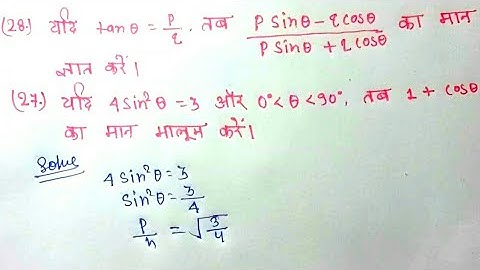 (28.) यदि tanθ = P/q. तब (P Sinθ - q cosθ)/(P Sinθ + q cosθ) का मान
ज्ञात करें।
(27.) यदि 4 Sin²θ = 3 और 0° < θ < 90°, तब 1 + cosθ
का मान मालूम करें।
Solve
4 Sin²θ = 3
Sin²θ = 3/4
P/h = √3/4